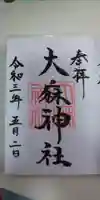 奉拝
大麻神社
令和三年五月二日